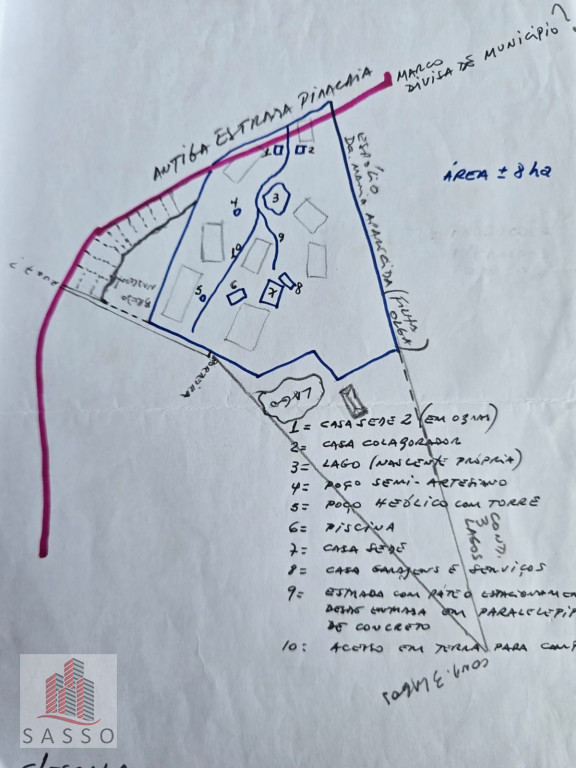 MARCO
DIVISA DE MUNICÍPIO?
ANTIGA ESTRADA PIRACAIA
ÁREA ± 8 ha
ESPÓLIO
Da. MARIA APARECIDA (FILHA
OLGA)
1
2
3
4
10
9
5
6
7
8
RUA 7?
BREJO
NASCENTE
PORTEIRA
LAGO
1= CASA SEDE 2 (EM OBRA)
2= CASA COLABORADOR
3= LAGO (NASCENTE PRÓPRIA)
4= POÇO SEMI-ARTESIANO
5= POÇO HEÓLICO COM TORRE
6= PISCINA
7= CASA SEDE
8= CASA GARAGENS E SERVIÇOS
9= ESTRADA COM PÁTEO ESTACIONAMEN
DESDE ENTRADA EM PARALELEPÍP
DE CONCRETO
10: ACESSO EM TERRA PARA
COND.
3
LAGOS
COND. 3 LAGOS
SASSO